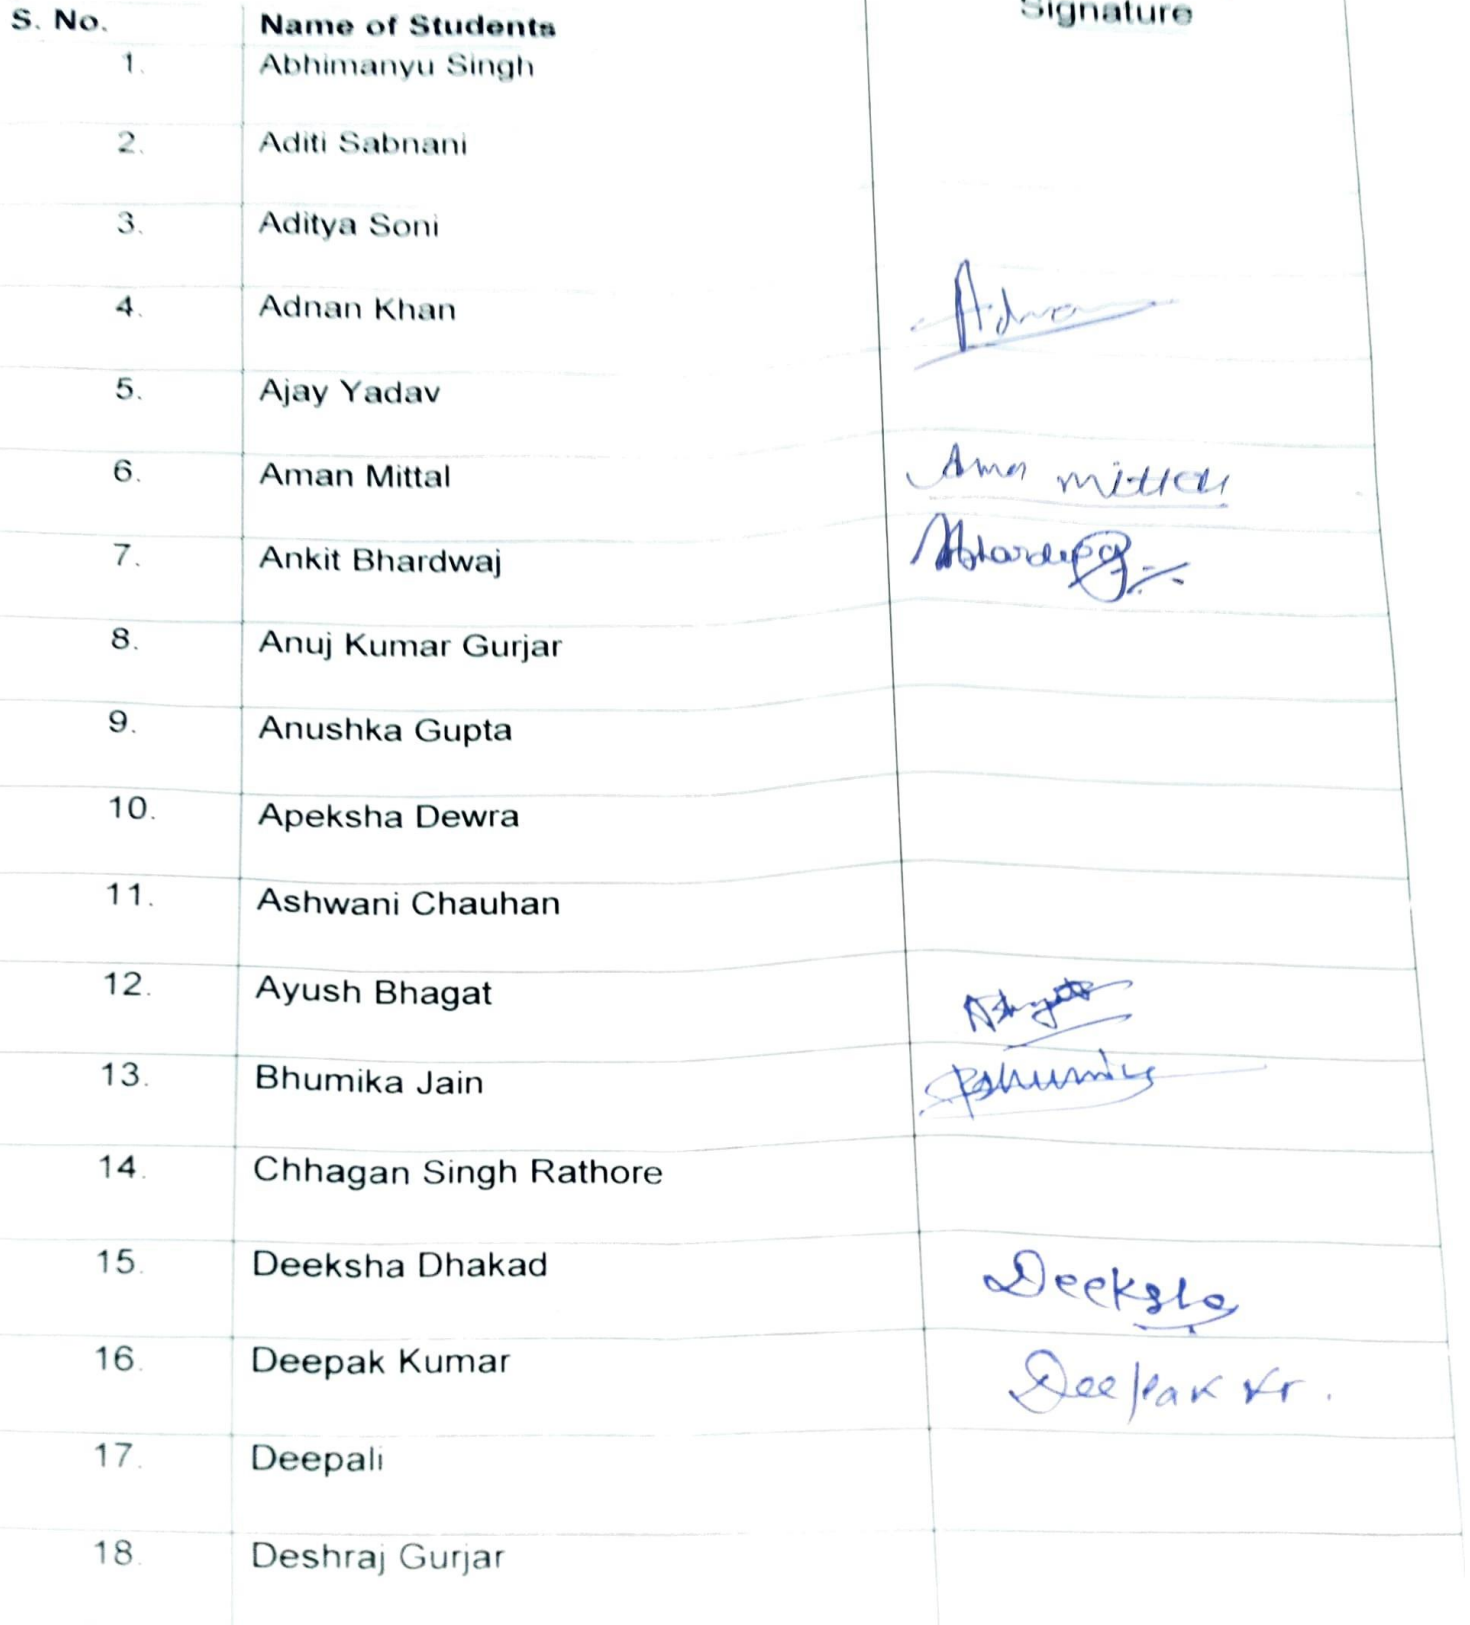 S. No. Name of Students Signature
1. Abhimanyu Singh
2. Aditi Sabnani
3. Aditya Soni
4. Adnan Khan Adnan
5. Ajay Yadav
6. Aman Mittal Aman Mittal
7. Ankit Bhardwaj
8. Anuj Kumar Gurjar
9. Anushka Gupta
10. Apeksha Dewra
11. Ashwani Chauhan
12. Ayush Bhagat
13. Bhumika Jain Bhumika
14. Chhagan Singh Rathore
15. Deeksha Dhakad Deeksha
16. Deepak Kumar Deepak Kr.
17. Deepali
18. Deshraj Gurjar